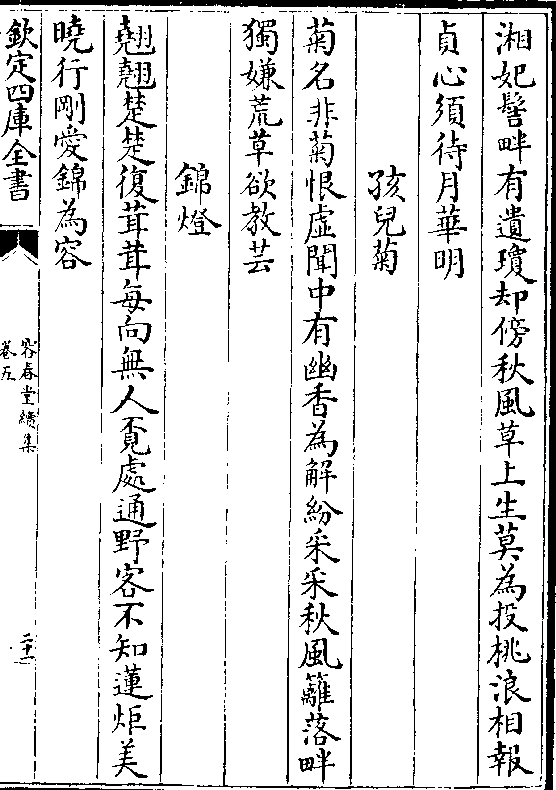 湘妃髻畔有遺瓊却傍秋風草上生莫為投桃浪相報
貞心須待月華明
孩兒菊
菊名非菊恨虛聞中有幽香為解紛采采秋風籬落畔
獨嫌荒草欲教芸
錦燈
翹翹楚楚復茸茸每向無人覔處通野客不知蓮炬美
曉行剛愛錦為容
欽定四庫全書
容春堂續集
卷五
二十一